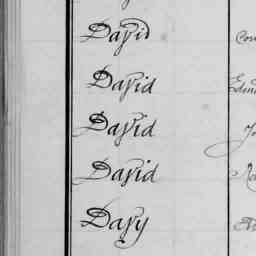 David
David
David
David
Davy